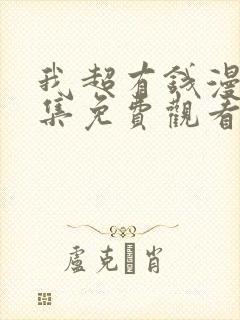 我超有錢漫
集免費觀看
盧克 肖